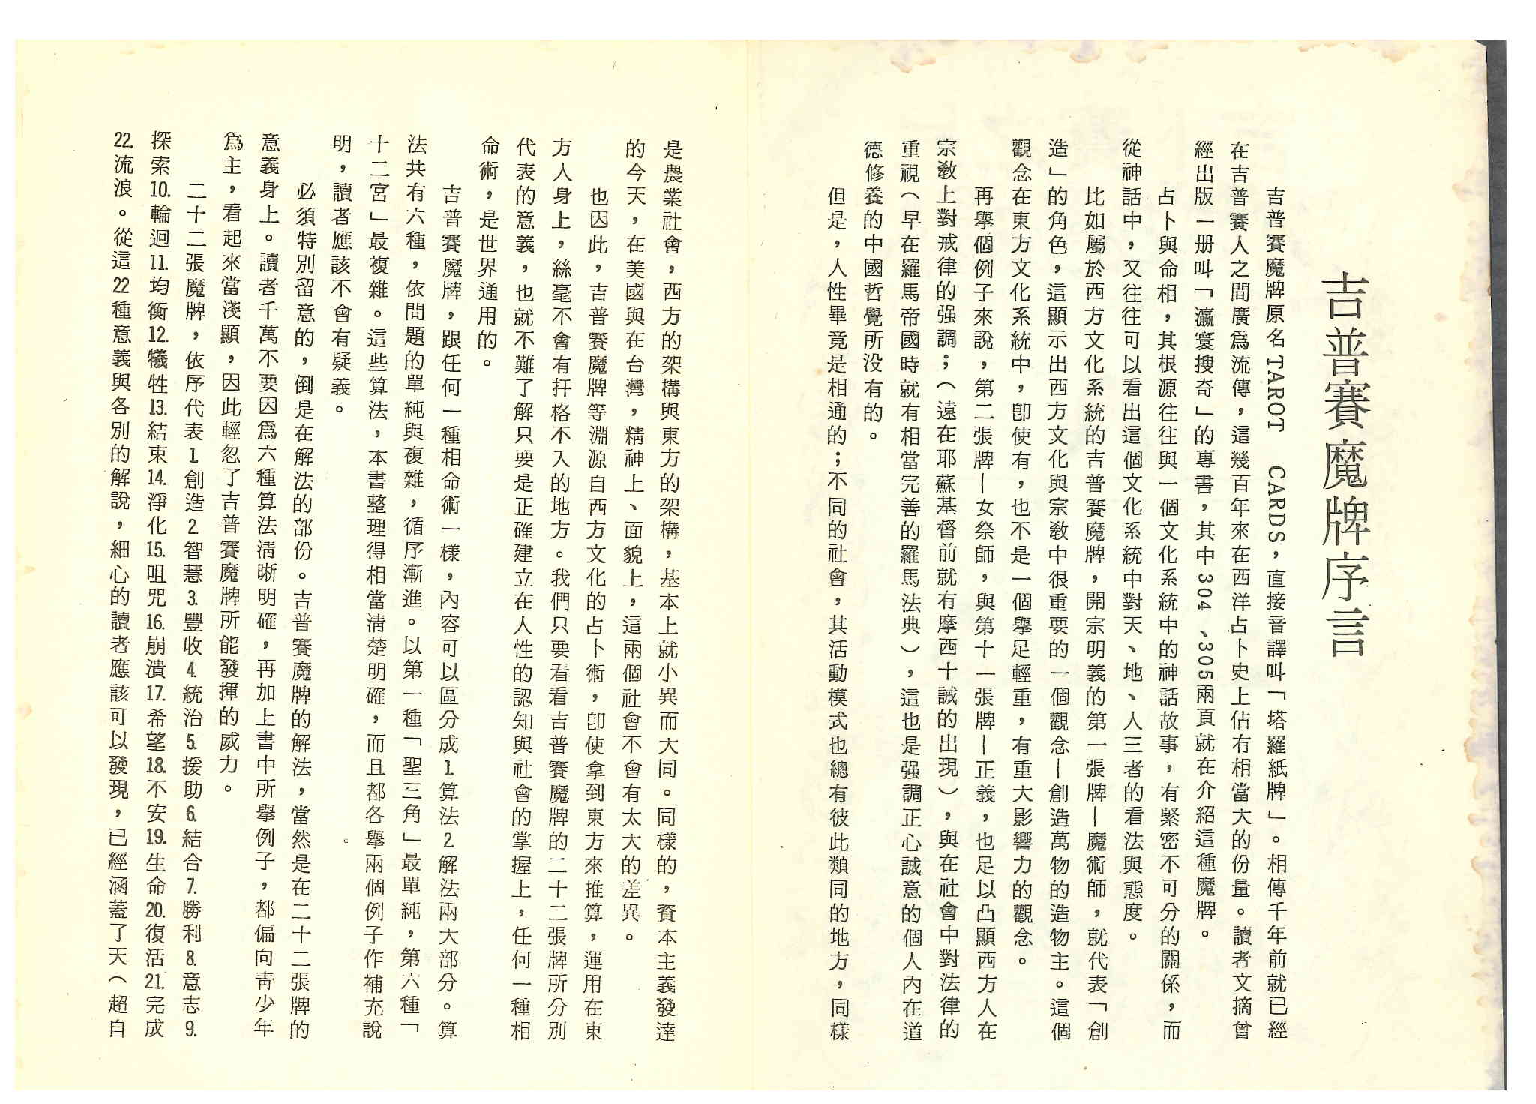 吉普賽魔牌序言
吉普賽魔牌原名TAROT CARDS，直接音譯叫「塔羅紙牌」。相傳千年前就已經
在吉普賽人之間廣為流傳，這幾百年來在西洋占卜史上佔有相當大的份量。讀者文摘曾
經出版一册叫「瀛寰搜奇」的專書，其中304、305兩頁就在介紹這種魔牌。
占卜與命相，其根源往往與一個文化系統中的神話故事，有緊密不可分的關係，而
從神話中，又往往可以看出這個文化系統中對天、地、人三者的看法與態度。
比如屬於西方文化系統的吉普賽魔牌，開宗明義的第一張牌—魔術師，就代表「創
造」的角色，這顯示出西方文化與宗教中很重要的一個觀念—創造萬物的造物主。這個
觀念在東方文化系統中，卽使有，也不是一個擧足輕重，有重大影響力的觀念。
再擧個例子來說，第二張牌—女祭師，與第十一張牌—正義，也足以凸顯西方人在
宗教上對戒律的强調；（遠在耶蘇基督前就有摩西十誡的出現），與在社會中對法律的
重視（早在羅馬帝國時就有相當完善的羅馬法典），這也是强調正心誠意的個人內在道
德修養的中國哲覺所没有的。
但是，人性畢竟是相通的；不同的社會，其活動模式也總有彼此類同的地方，同樣
是農業社會，西方的架構與東方的架構，基本上就小異而大同。同樣的，資本主義發達
的今天，在美國與在台灣，精神上、面貌上，這兩個社會不會有太大的差異。
也因此，吉普賽魔牌等淵源自西方文化的占卜術，卽使拿到東方來推算，運用在東
方人身上，絲毫不會有扞格不入的地方。我們只要看看吉普賽魔牌的二十二張牌所分別
代表的意義，也就不難了解只要是正確建立在人性的認知與社會的掌握上，任何一種相
命術，是世界通用的。
吉普賽魔牌，跟任何一種相命術一樣，內容可以區分成1算法2解法兩大部分。算
法共有六種，依問題的單純與複雜，循序漸進。以第一種「聖三角」最單純，第六種「
十二宮」最複雜。這些算法，本書整理得相當清楚明確，而且都各擧兩個例子作補充說
明，讀者應該不會有疑義。
必須特別留意的，倒是在解法的部份。吉普賽魔牌的解法，當然是在二十二張牌的
意義身上。讀者千萬不要因為六種算法清晰明確，再加上書中所擧例子，都偏向靑少年
為主，看起來當淺顯，因此輕忽了吉普賽魔牌所能發揮的威力。
二十二張魔牌，依序代表1創造2智慧3.豐收4.統治5.援助6.結合7.勝利8.意志9.
探索10.輪迴11.均衡12.犧牲13.結束14.淨化15.咀咒16.崩潰17.希望18.不安19.生命20.復活21.完成
22.流浪。從這22種意義與各別的解說，細心的讀者應該可以發現，已經涵蓋了天（超自